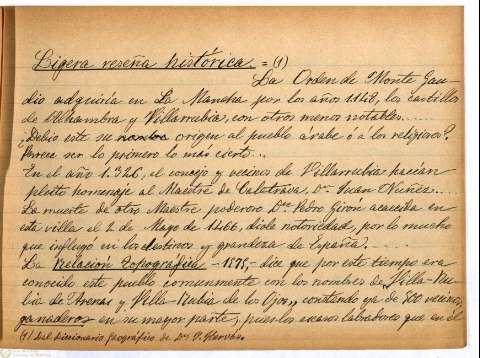 Ligera reseña histórica = (1)
La Orden de Monte Gau-
dio adquiría en La Mancha, por los años 1148, los castillos
de Alhambra y Villarrubia, con otros menos notables....
¿Debió este su nombre origen al pueblo árabe ó a los religiosos?
Parece ser lo primero lo más cierto...
En el año 1.326, el concejo y vecinos de Villarrubia hacían
pleito homenaje al Maestre de Calatrava, Dn. Juan Nuñez....
La muerte de otro Maestre poderoso Dn. Pedro Girón acaecida en
esta villa el 2 de Mayo de 1466, dióle notoriedad, por lo mucho
que influyó en los destinos y grandeza de España.....
La Relación Topográfica -1575,- dice que por este tiempo era
conocido este pueblo comunmente con los nombres de Villa-Ru-
bia de Arenas y Villa-Rubia de los Ojos, contando ya de vecinos,
ganaderos en su mayor parte, pues los escasos labradores que en él
(1) Del Diccionario geográfico de Dn. I. Hervás.